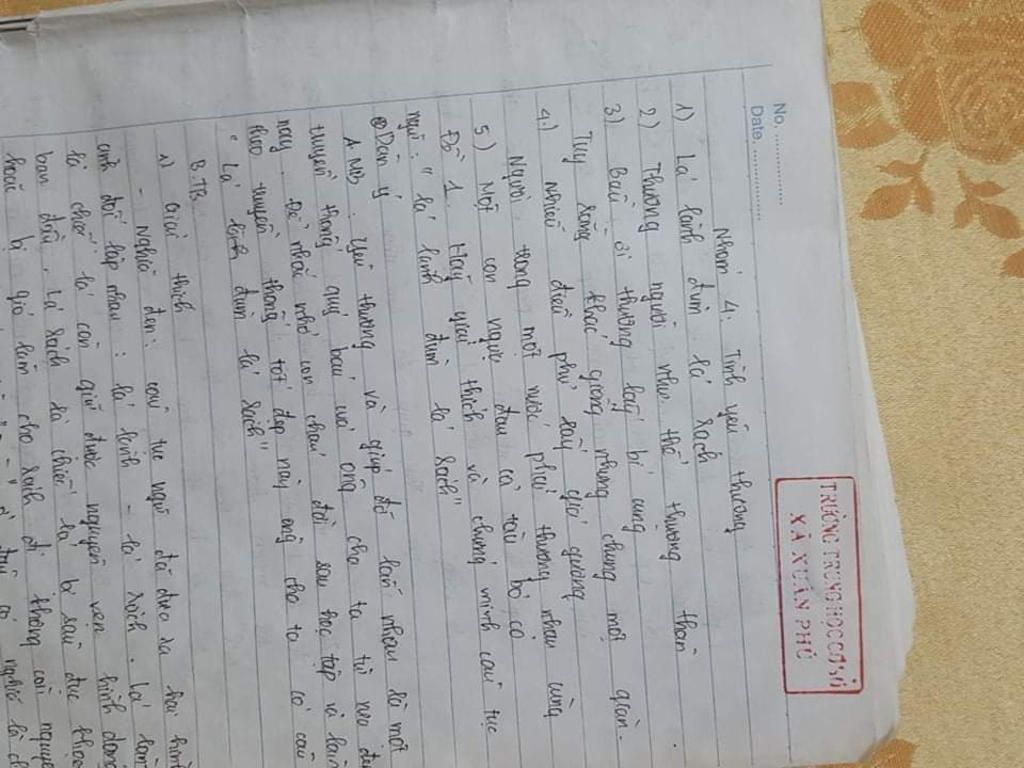 No. ....................
Date ....................
TRƯỜNG TRUNG HỌC CƠ SỞ
XÃ XUÂN PHÚ
Nhóm 4: Tình yêu thương
1) Lá lành đùm lá rách
2) Thương người như thể thương thân
3) Bầu ơi thương lấy bí cùng
Tuy rằng khác giống nhưng chung một giàn.
4.) Nhiễu điều phủ lấy giá gương
Người trong một nước phải thương nhau cùng
5) Một con ngựa đau cả tàu bỏ cỏ
Đề 1 Hãy giải thích và chứng minh câu tục
ngữ: "lá lành đùm lá rách"
Dàn ý
A MB. Yêu thương và giúp đỡ lẫn nhau là một
truyền thống quý báu mà ông cha ta từ xưa
nay. Để nhắc nhở con cháu đời sau học tập và
theo truyền thống tốt đẹp này ông cha ta có câu
"Lá lành đùm lá rách"
B. TB
1) Giải thích
- Nghĩa đen: câu tục ngữ đã đưa ra hai hình
ảnh đối lập nhau: lá lành - lá rách. Lá
là chiếc lá còn giữ được nguyên vẹn hình dạng
ban đầu. Lá rách là chiếc lá bị sâu đục
hoặc bị gió làm cho rách đi không còn